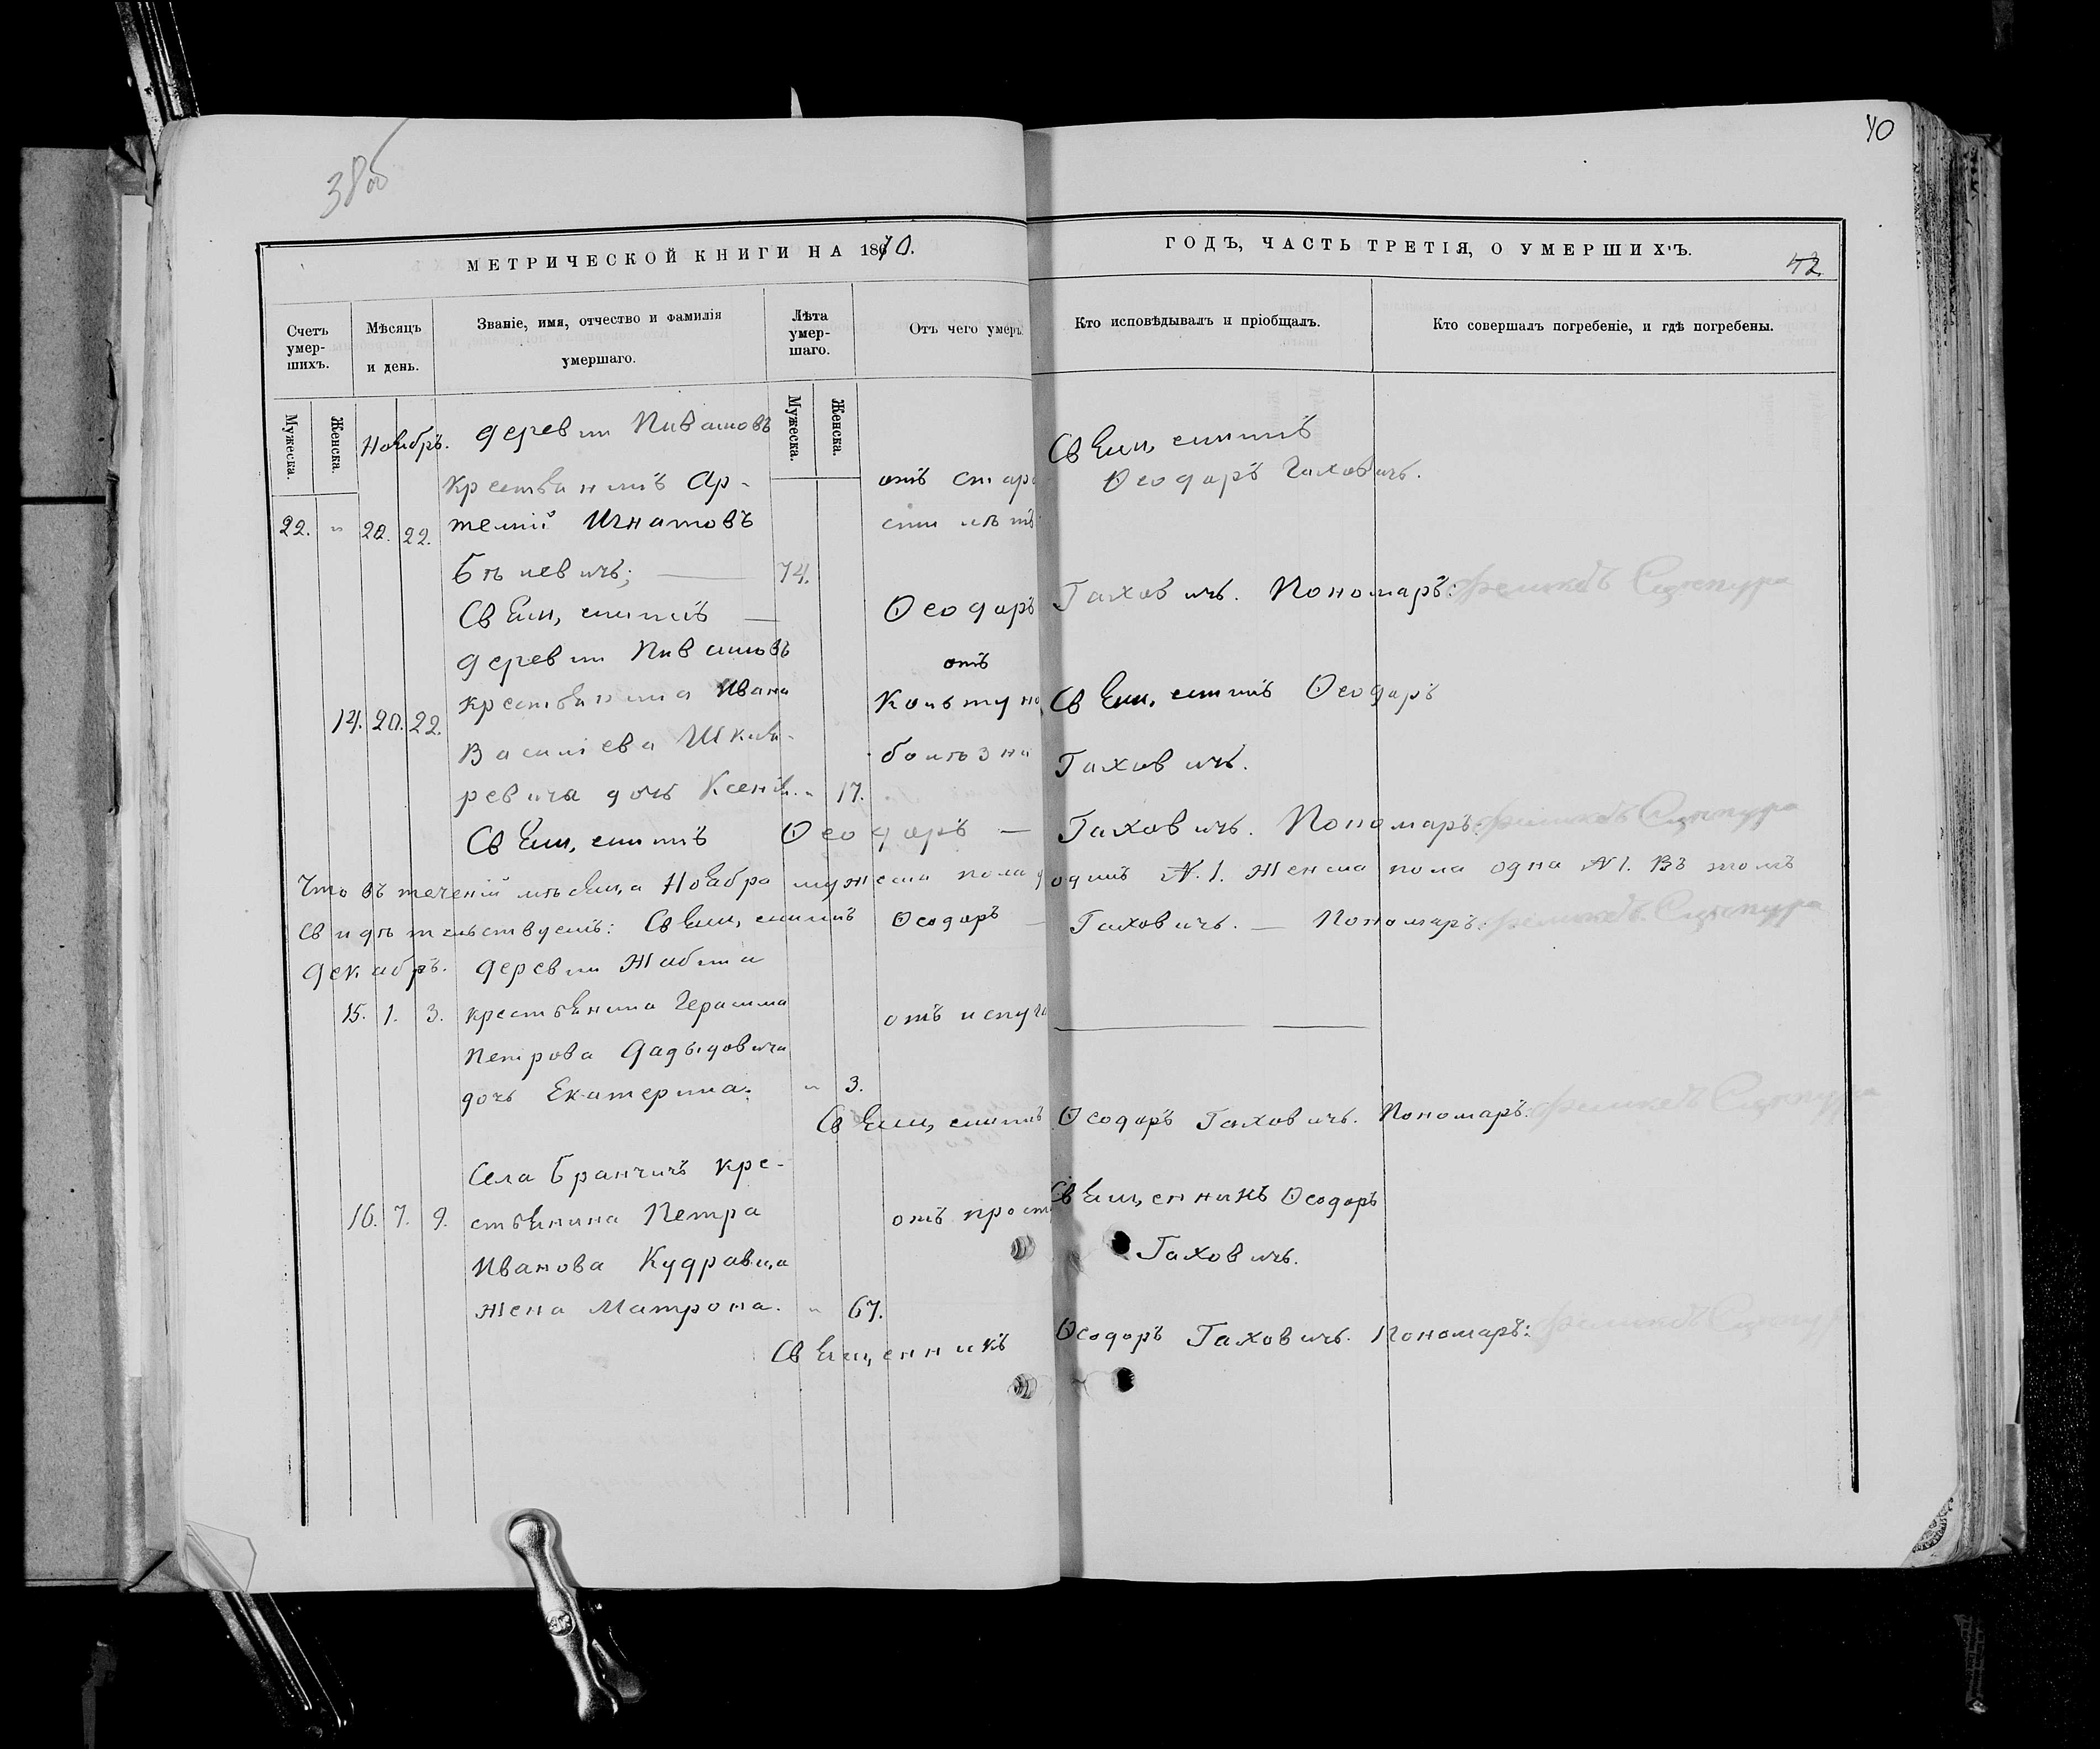 38об
40
МЕТРИЧЕСКОЙ КНИГИ НА 1870.
ГОДЪ, ЧАСТЬ ТРЕТІЯ, О УМЕРШИХЪ.
42
Счетъ умер-шихъ.
Мѣсяцъ и день.
Званіе, имя, отчество и фамилія умершаго.
Лѣта умер-шаго.
Отъ чего умеръ.
Кто исповѣдывалъ и пріобщалъ.
Кто совершалъ погребеніе, и гдѣ погребены.
Мужеска.
Женска.
Мужеска.
Женска.
Ноябрь. деревни Пивашовъ
крестьянинъ Ар-
22. " 20. 22. темій Игнатовъ
Бѣлевичъ; — 74.
отъ старо
сти лѣтъ
Священникъ
Ѳеодоръ Гаховичъ.
Священникъ — Ѳеодоръ Гаховичъ. Пономарь:
деревни Пивашовъ
14. 20. 22. крестьянина Ивана
Василіева Шкля-
ревича дочь Ксенія. " 17.
отъ
Колтуно
болѣзни
Священникъ Ѳеодоръ
Гаховичъ.
Священникъ Ѳеодоръ — Гаховичъ. Пономарь:
Что въ теченіи мѣсяца Ноября мужеска пола одинъ №. 1. Женска пола одна №1. Въ томъ
свидѣтельствуемъ: Священникъ Ѳеодоръ — Гаховичъ. — Пономарь:
Декабрь. деревни Жабина
15. 1. 3. крестьянина Герасима
Петрова Дадыдовича
дочь Екатерина. " 3.
отъ испуга
Священникъ Ѳеодоръ Гаховичъ. Пономарь:
Села Бранчичъ кре-
16. 7. 9. стьянина Петра
Иванова Кудравца
жена Матрона. " 67.
отъ прост
Священникъ Ѳеодоръ
Гаховичъ.
Священникъ Ѳеодоръ Гаховичъ. Пономарь: